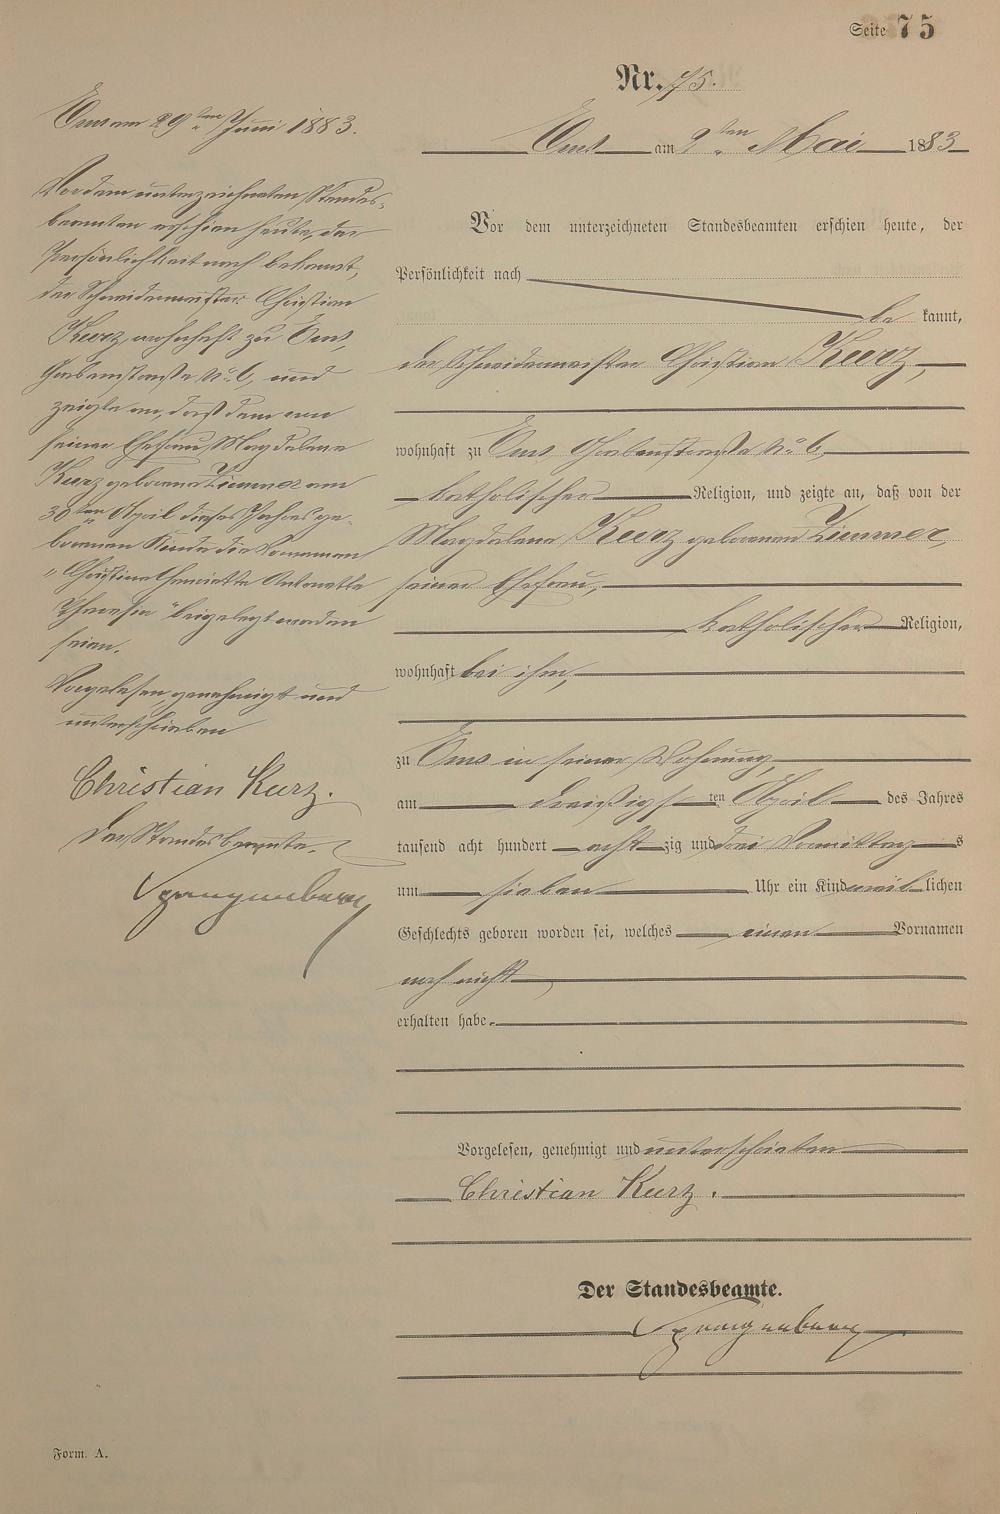 Seite 75
Nr. 75.
Ems am 9ten Mai 1883
Vor dem unterzeichneten Standesbeamten erschien heute, der
Persönlichkeit nach
be kannt,
der Schneidermeister Christian Kurz,
wohnhaft zu Ems, Grabenstraße No 6,
katholischer Religion, und zeigte an, daß von der
Magdalena Kurz geborenen Zimmer,
seiner Ehefrau,
katholischer Religion,
wohnhaft bei ihm,
zu Ems in seiner Wohnung,
am dreißigsten April des Jahres
tausend acht hundert achtzig und drei Vormittags
um sieben Uhr ein Kind weiblichen
Geschlechts geboren worden sei, welches einen Vornamen
noch nicht
erhalten habe.
Vorgelesen, genehmigt und unterschrieben
Christian Kurz.
Der Standesbeamte.
Spangenberg
Ems am 29ten Juni 1883.
Vor dem unterzeichneten Standes-
beamten erschien heute, der
Persönlichkeit nach bekannt,
der Schneidermeister Christian
Kurz, wohnhaft zu Ems,
Grabenstraße No 6, und
zeigte an, daß dem von
seiner Ehefrau Magdalena
Kurz geborene Zimmer am
30ten April dieses Jahres ge-
borenen Kinde die Vornamen
"Christina Henriette Antonette
Theresia" beigelegt worden
seien.
Vorgelesen, genehmigt und
unterschrieben
Christian Kurz.
Der Standesbeamte.
Spangenberg
Form. A.